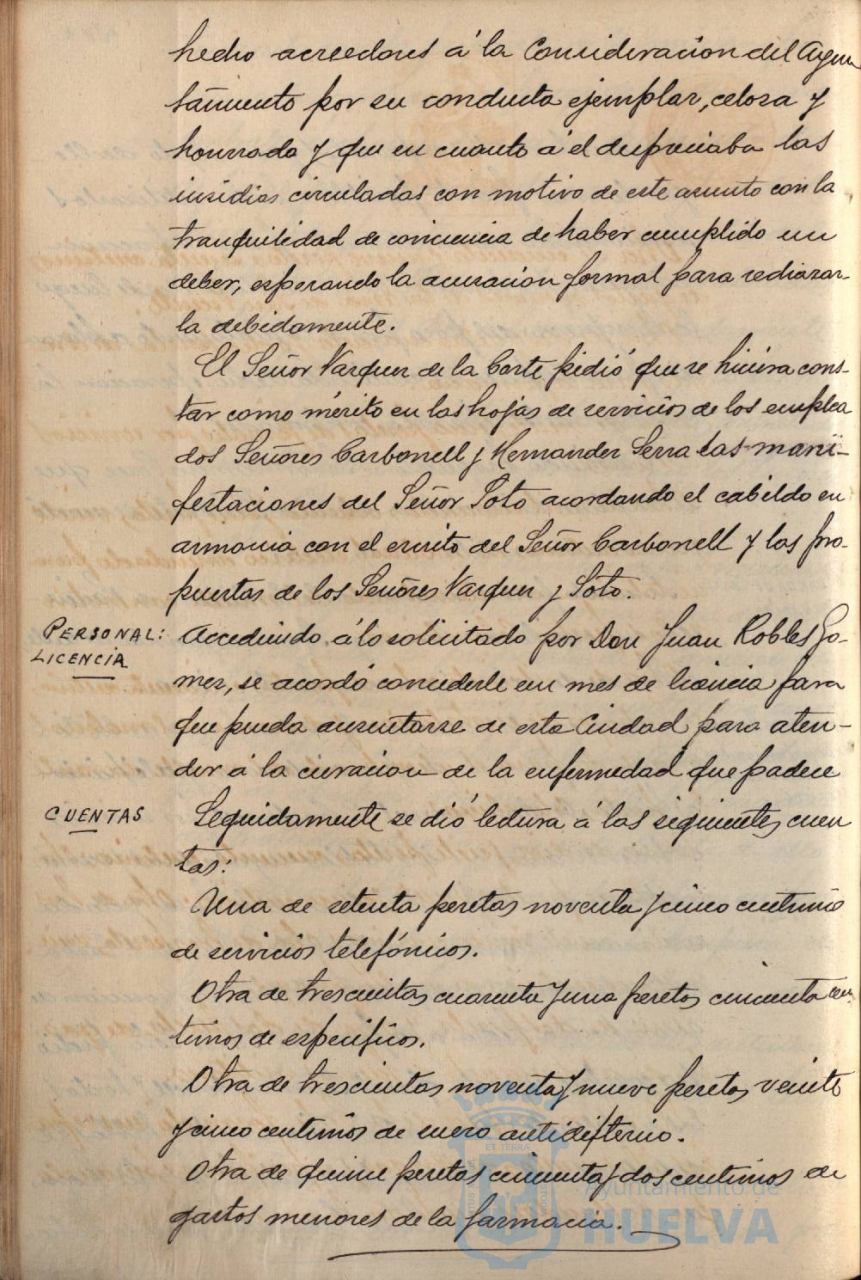 hecho acreedores á la Consideracion del Ayun
tamiento por su conducta ejemplar, celosa y
honrrada y que en cuanto á él despreciaba las
insidias circuladas con motivo de este asunto con la
tranquilidad de conciencia de haber cumplido un
deber, esperando la acusacion formal para rechazar-
la debidamente.
El Señor Vazquez de la Corte pidió que se hiciera cons-
tar como mérito en las hojas de servicios de los emplea
dos Señores Carbonell y Hernandez Serra las mani-
festaciones del Señor Soto acordando el cabildo en
armonia con el escrito del Señor Carbonell y las pro-
puestas de los Señores Vazquez y Soto.
PERSONAL:
LICENCIA
Accediendo á lo solicitado por Don Juan Robles Go-
mez, se acordó concederle un mes de licencia para
que pueda ausentarse de esta Ciudad para aten-
der á la curacion de la enfermedad que padece
CUENTAS
Seguidamente se dió lectura á las siguientes cuen
tas:
Una de setenta pesetas noventa y cinco centimos
de servicios telefónicos.
Otra de trescientas cuarenta y una pesetas cincuenta cen
timos de especificos.
Otra de trescientas noventa y nueve pesetas veinte
y cinco centimos de suero antidifterico.
Otra de quince pesetas cincuenta y dos centimos de
gastos menores de la farmacia.
Ayuntamiento de
HUELVA